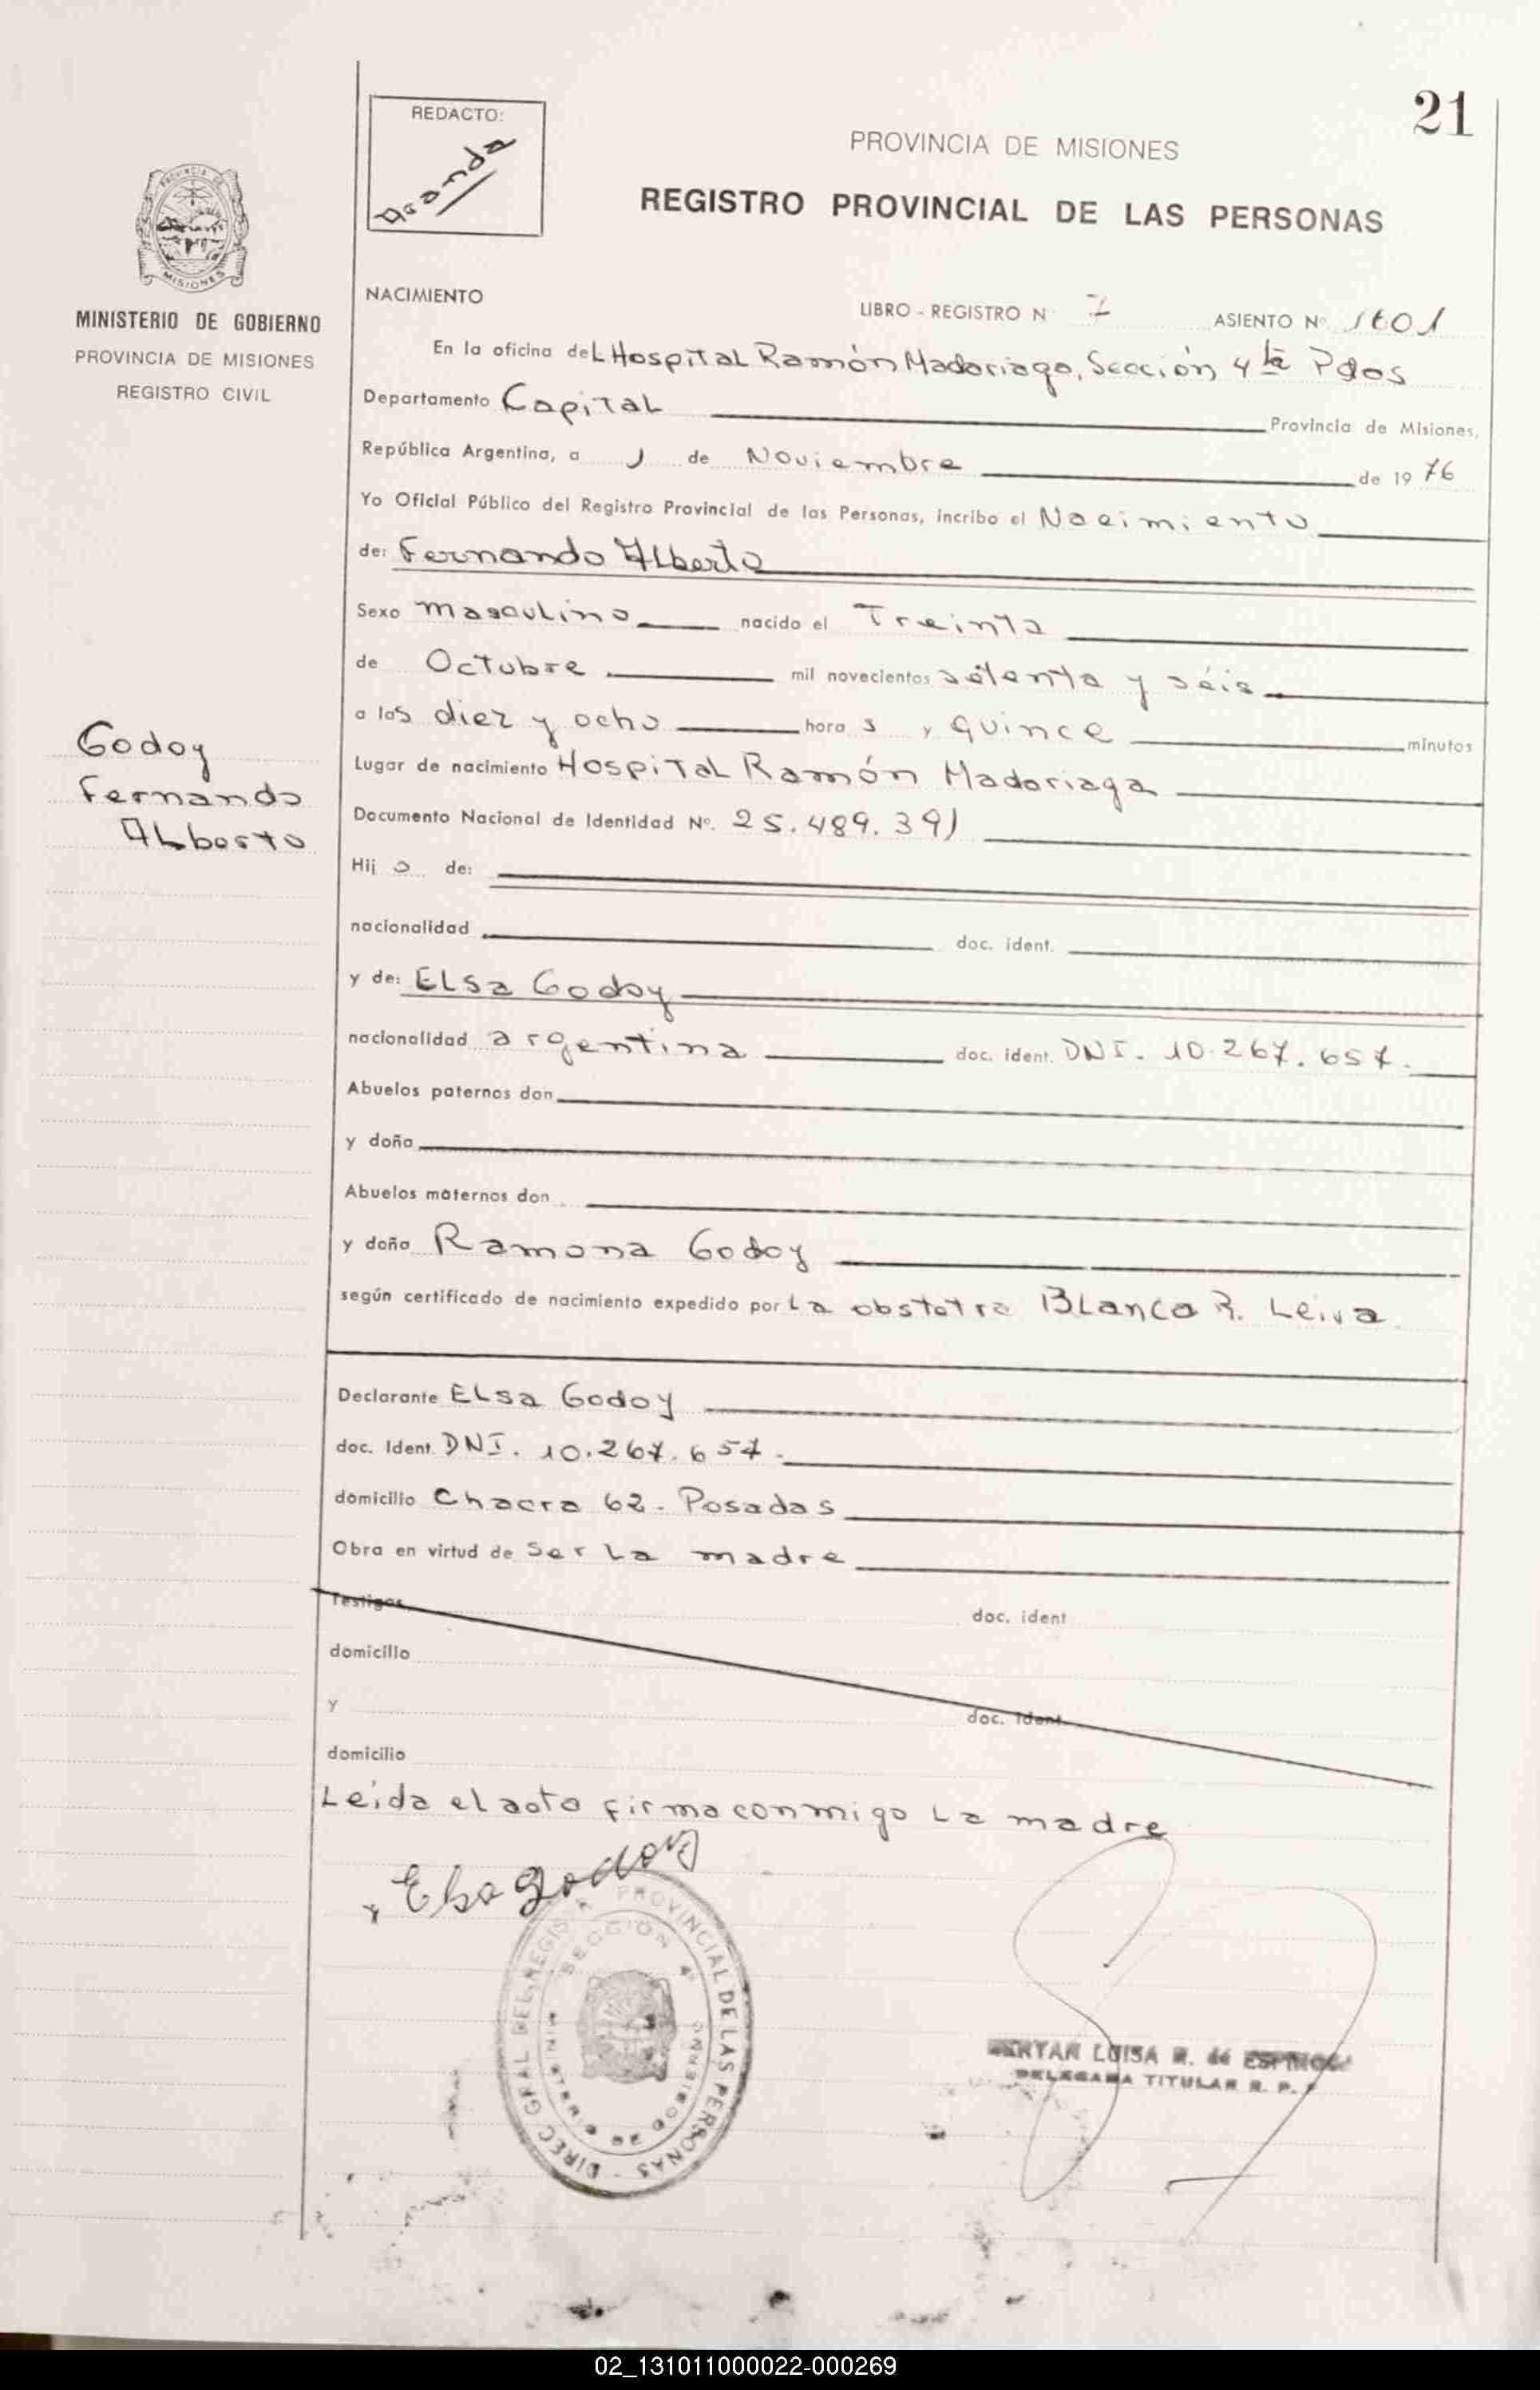 21
REDACTO:
Aranda
PROVINCIA DE MISIONES
REGISTRO PROVINCIAL DE LAS PERSONAS
PROVINCIA DE
MISIONES
MINISTERIO DE GOBIERNO
PROVINCIA DE MISIONES
REGISTRO CIVIL
NACIMIENTO
LIBRO - REGISTRO N 7 ASIENTO Nº 1601
En la oficina del Hospital Ramón Madariaga, Sección 4ta Pdas
Departamento Capital Provincia de Misiones,
República Argentina, a 1 de Noviembre de 1976
Yo Oficial Público del Registro Provincial de las Personas, incribo el Nacimiento
de: Fernando Alberto
Sexo masculino nacido el Treinta
de Octubre mil novecientos setenta y séis
a las diez y ocho horas y quince minutos
Godoy
Fernando
Alberto
Lugar de nacimiento Hospital Ramón Madariaga
Documento Nacional de Identidad Nº. 25.489.391
Hijo de:
nacionalidad doc. ident.
y de: Elsa Godoy
nacionalidad argentina doc. ident. DNI. 10.267.657.
Abuelos paternos don
y doña
Abuelos maternos don
y doña Ramona Godoy
según certificado de nacimiento expedido por La obstetra Blanca R. Leiva
Declarante Elsa Godoy
doc. Ident. DNI. 10.267.657.
domicilio Chacra 62 - Posadas
Obra en virtud de ser La madre
Testigos doc. ident
domicilio
y doc. ident
domicilio
Leída el acta firma conmigo La madre
Elsa godoy
DIREC GRAL DEL REGIST PROVINCIAL DE LAS PERSONAS
SECCION 4ª
MINISTERIO DE GOBIERNO
LUISA R. de
DELEGADA TITULAR R. P.
02_131011000022-000269